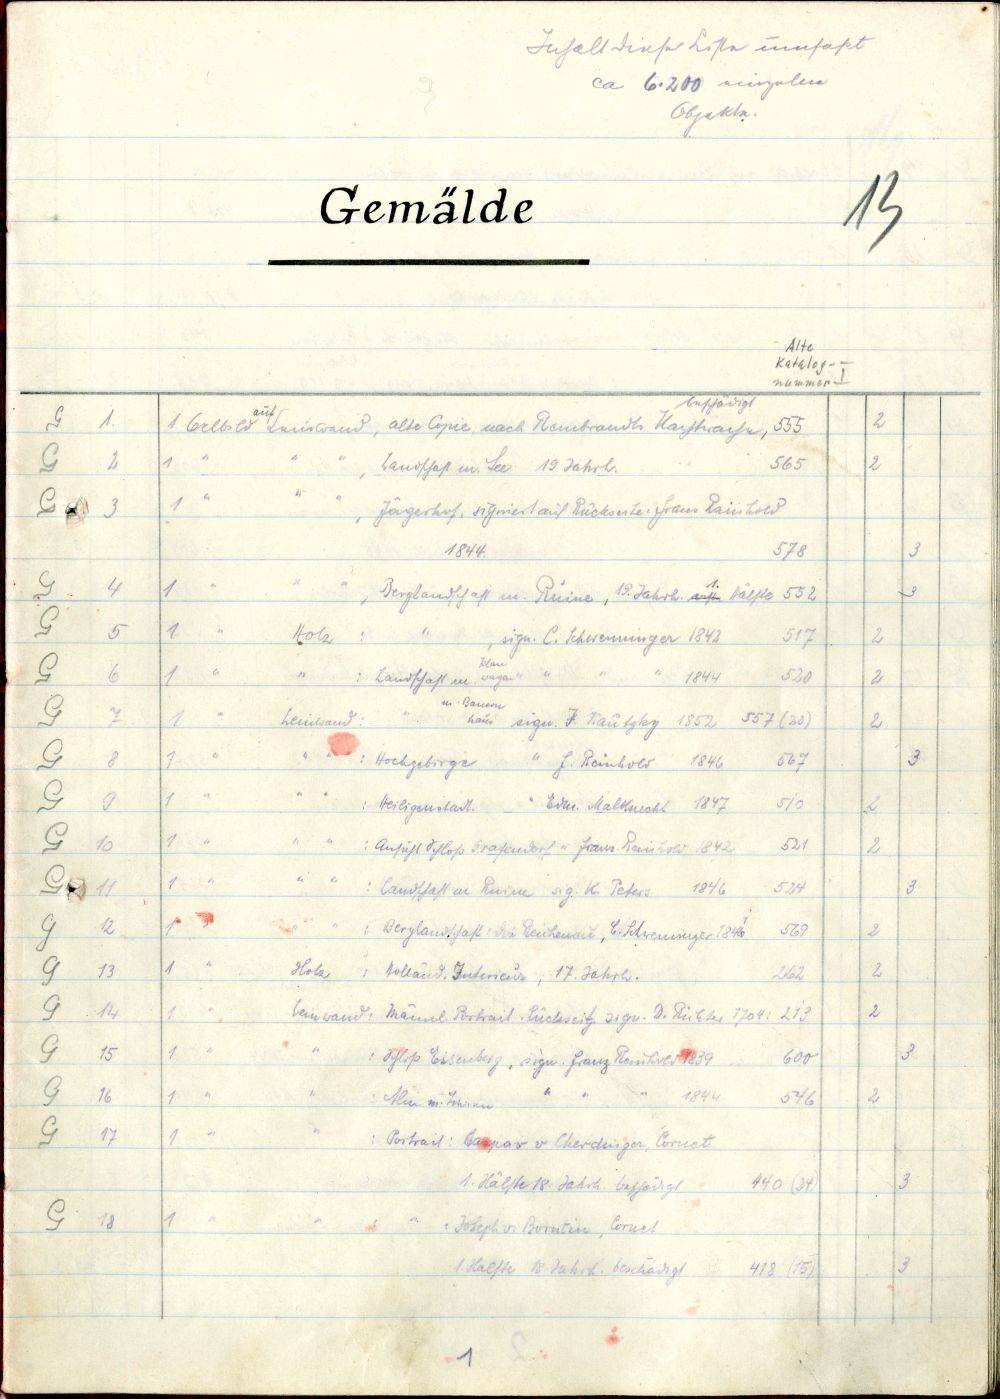 Inhalt dieser Liste umfaßt
ca 6.200 einzelne
Objekte.
Gemälde
13
Alte
Katalog-
nummer I
beschädigt
G 1. 1 Oelbild auf Leinwand, alte Copie nach Rembrandts Nachtwache, 555 2
G 2 1 " " ", Landschaft m. See 19 Jahrh. 565 2
G 3 1 " " ", Jägerhof, signiert auf Rückseite: Franz Reinhold
1844 578 3
G 4 1 " " ", Berglandschaft m. Ruine, 19. Jahrh. 1. Hälfte 532 3
G 5 1 " Holz : " , sign. C. Schwenninger 1843 517 2
G 6 1 " " : Landschaft m. wagen " " " " 1844 520 2
m. Bauern
G 7 1 " Leinwand : " haus sign. J. Nautzky 1852 557 (20) 2
G 8 1 " " " : Hochgebirge " F. Reinhold 1846 567 3
G 9 1 " " " : Heiligenstadt. " Edm. Malknecht 1847 510 2
G 10 1 " " " : Ansicht Schloß " Franz Reinhold 1842 521 2
G 11 1 " " " : Landschaft m Ruine sig. K. Peters 1846 524 3
G 12 1 " " " : Berglandschaft: Reichenau, C. Schwenninger 1846 569 2
G 13 1 " Holz : Holländ. Interieur, 17. Jahrh. 262 2
G 14 1 " Leinwand : Männl. Portrait. Rückseitg sign. D. Richter 1704: 213 2
G 15 1 " " : Schloß Eisenberg, sign. Franz Reinhold 1839 600 3
G 16 1 " " : Alm m. " " " 1844 546 2
G 17 1 " " : Portrait: Caspar v Cherdinger, Cornet
1. Hälfte 18. Jahrh. beschädigt 440 (24) 3
G 18 1 " " " " : Joseph v. Cornet
1. Hälfte 18. Jahrh. beschädigt 418 (15) 3
1